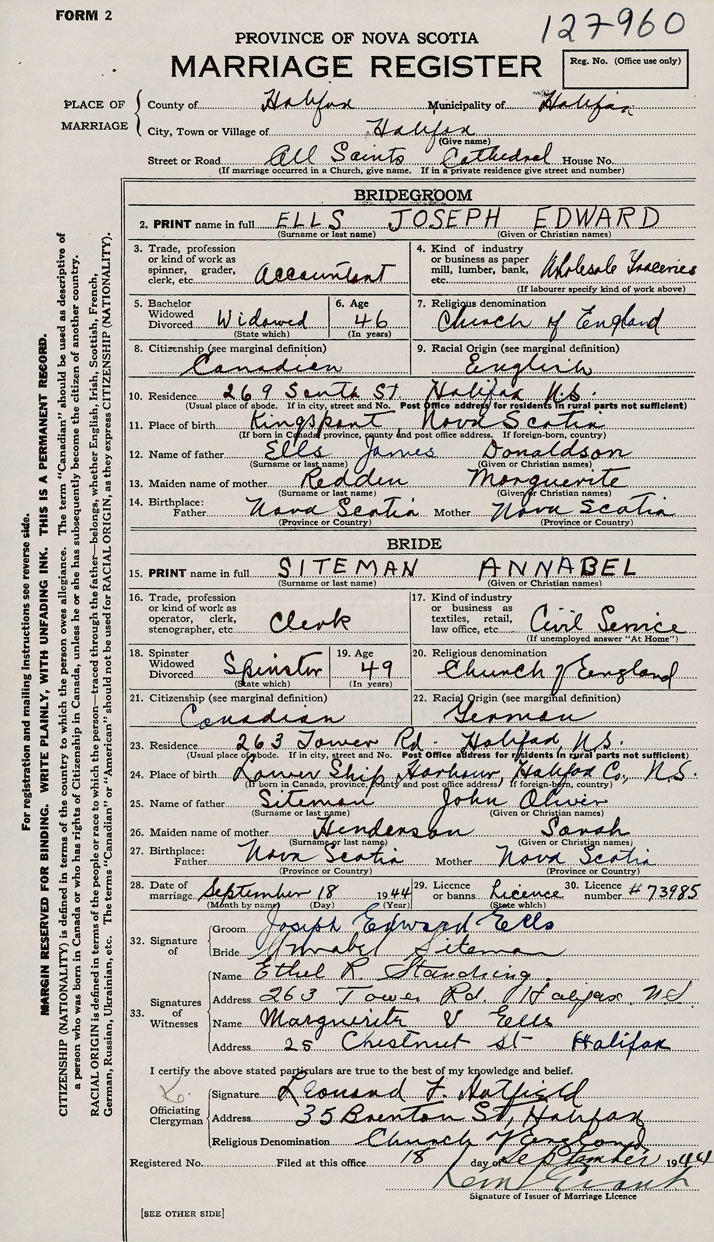 FORM 2
127960
PROVINCE OF NOVA SCOTIA
MARRIAGE REGISTER
Reg. No. (Office use only)
PLACE OF MARRIAGE
County of Halifax Municipality of Halifax
City, Town or Village of Halifax
(Give name)
Street or Road All Saints Cathedral House No.
(If marriage occurred in a Church, give name. If in a private residence give street and number)
BRIDEGROOM
2. PRINT name in full ELLS JOSEPH EDWARD
(Surname or last name) (Given or Christian names)
3. Trade, profession or kind of work as spinner, grader, clerk, etc. Accountant
4. Kind of industry or business as paper mill, lumber, bank, etc. Wholesale Groceries
(If labourer specify kind of work above)
5. Bachelor Widowed Divorced Widowed
(State which)
6. Age 46
(In years)
7. Religious denomination
Church of England
8. Citizenship (see marginal definition)
Canadian
9. Racial Origin (see marginal definition)
English
10. Residence 269 South St Halifax N.S.
(Usual place of abode. If in city, street and No. Post Office address for residents in rural parts not sufficient)
11. Place of birth Kingsport, Nova Scotia
(If born in Canada, province, county and post office address. If foreign-born, country)
12. Name of father Ells James Donaldson
(Surname or last name) (Given or Christian names)
13. Maiden name of mother Redden Marguerite
(Surname or last name) (Given or Christian names)
14. Birthplace: Father Nova Scotia Mother Nova Scotia
(Province or Country) (Province or Country)
BRIDE
15. PRINT name in full SITEMAN ANNABEL
(Surname or last name) (Given or Christian names)
16. Trade, profession or kind of work as operator, clerk, stenographer, etc. Clerk
17. Kind of industry or business as textiles, retail, law office, etc. Civil Service
(If unemployed answer "At Home")
18. Spinster Widowed Divorced Spinster
(State which)
19. Age 49
(In years)
20. Religious denomination
Church of England
21. Citizenship (see marginal definition)
Canadian
22. Racial Origin (see marginal definition)
German
23. Residence 263 Tower Rd. Halifax, N.S.
(Usual place of abode. If in city, street and No. Post Office address for residents in rural parts not sufficient)
24. Place of birth Lower Ship Harbour, Halifax Co., N.S.
(If born in Canada, province, county and post office address. If foreign-born, country)
25. Name of father Siteman John Oliver
(Surname or last name) (Given or Christian names)
26. Maiden name of mother Henderson Sarah
(Surname or last name) (Given or Christian names)
27. Birthplace: Father Nova Scotia Mother Nova Scotia
(Province or Country) (Province or Country)
28. Date of marriage September 18 1944
(Month by name) (Day) (Year)
29. Licence or banns Licence
(State which)
30. Licence number #73985
32. Signature of
Groom Joseph Edward Ells
Bride Annabel Siteman
33. Signatures of Witnesses
Name Ethel R. Standring
Address 263 Tower Rd. Halifax, N.S.
Name Marguerite V Eells
Address 25 Chestnut St Halifax
I certify the above stated particulars are true to the best of my knowledge and belief.
Officiating Clergyman
Signature Leonard F. Hatfield
Address 35 Brenton St, Halifax
Religious Denomination Church of England
Registered No. Filed at this office 18 day of September 1944
Signature of Issuer of Marriage Licence
[SEE OTHER SIDE]
For registration and mailing instructions see reverse side.
MARGIN RESERVED FOR BINDING. WRITE PLAINLY, WITH UNFADING INK. THIS IS A PERMANENT RECORD.
CITIZENSHIP (NATIONALITY) is defined in terms of the country to which the person owes allegiance. The term "Canadian" should be used as descriptive of
a person who was born in Canada or who has rights of Citizenship in Canada, unless he or she has subsequently become the citizen of another country.
RACIAL ORIGIN is defined in terms of the people or race to which the person—traced through the father—belongs, whether English, Irish, Scottish, French,
German, Russian, Ukrainian, etc. The terms "Canadian" or "American" should not be used for RACIAL ORIGIN, as they express CITIZENSHIP (NATIONALITY).